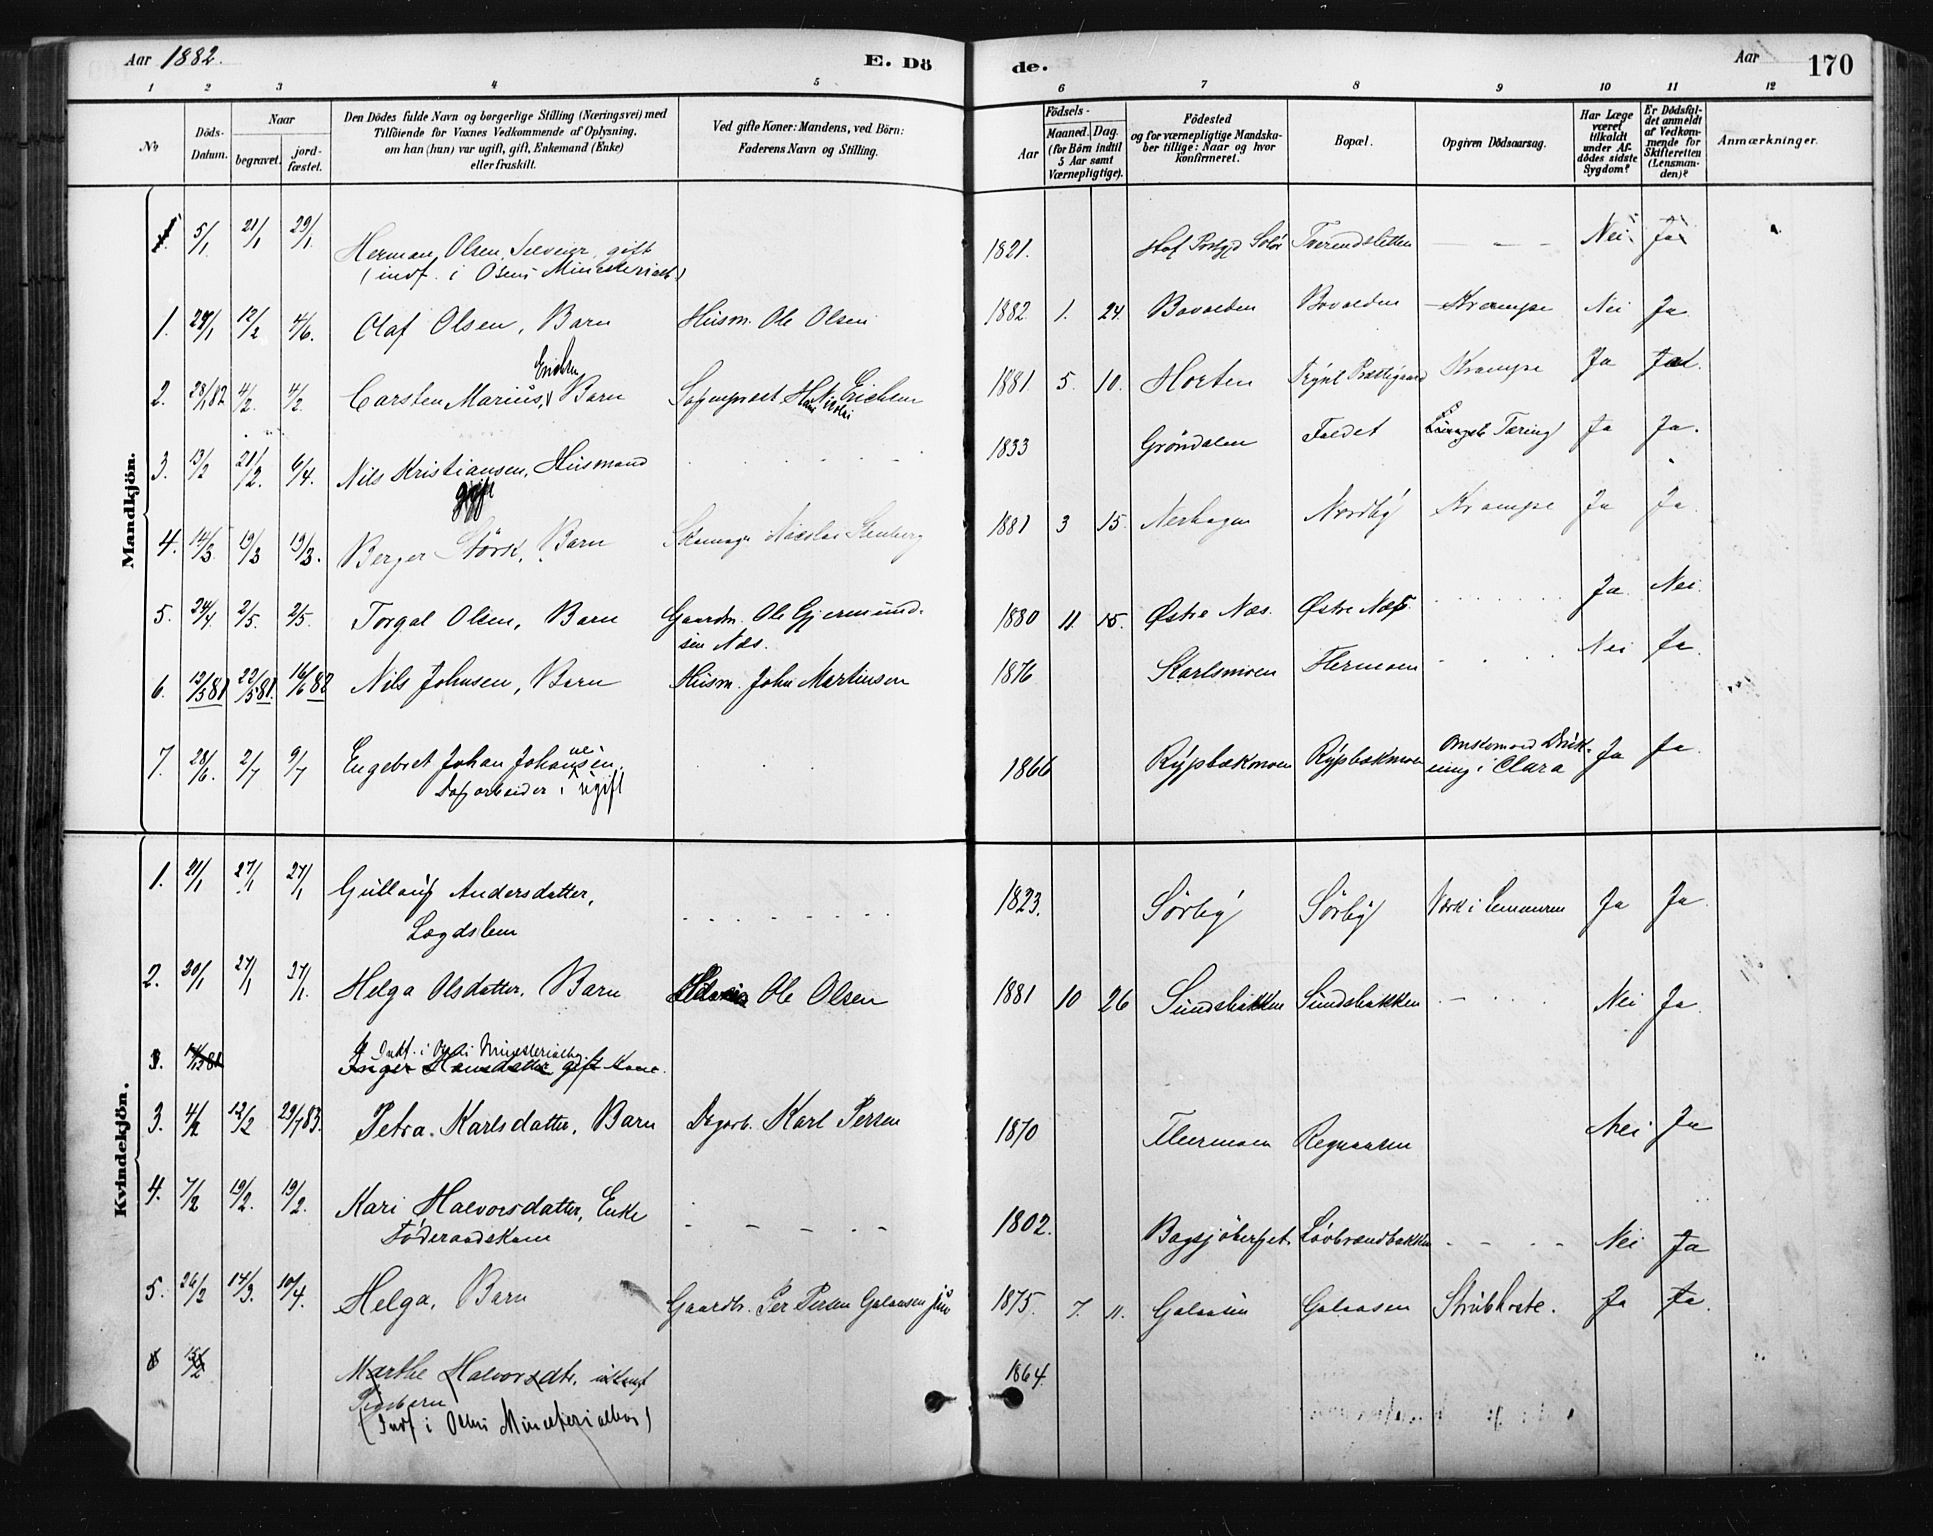 Aar 1882.
E. Dö
de.
Aar
170
1 2 3 4 5
6 7 8 9 10 11 12
No
Döds-Datum.
Naar
begravet.
jord-fæstet.
Den Dödes fulde Navn og borgerlige Stilling (Næringsvei) med
Tilföiende for Voxnes Vedkommende af Oplysning,
om han (hun) var ugift, gift, Enkemand (Enke)
eller fraskilt.
Ved gifte Koner: Mandens, ved Börn:
Faderens Navn og Stilling.
Födsels-
Aar
Maaned. Dag.
(for Börn indtil
5 Aar samt
Værnepligtige).
Födested
og for værnepligtige Mandska-
ber tillige: Naar og hvor
konfirmeret.
Bopæl.
Opgiven Dödsaarsag.
Har Læge
været
tilkaldt
under Af-
dödes sidste
Sygdom?
Er Dödsfal-
det anmeldt
af Vedkom-
mende for
Skifteretten
(Lensman-
den)?
Anmærkninger.
Mandkjön.
5/1 21/1 29/1 Herman Olsen gift 1821. Nei Ja
(indf. i Osens Ministerialb.)
1. 12/2 4/6. Olaf Olsen, Barn Husm. Ole Olsen 1882 1. 24. Bovolden Bovolden Krampe Nei Ja
Erichsen
2. 28/1 82 4/2. 4/2. Carsten Marius, Barn Erichsen 1881 5. 10. Horten Krampe Ja Ja
3. 13/2 21/2. 6/4. Nils Kristiansen, Husmand 1833 Gröndalen Faldet Tæring Ja Ja.
gift
4. 14/3 19/3 19/3. Berger Störk, Barn Nicolai Stenberg 1881 3 15. Nerhagen Nordby Krampe Ja Ja.
5. 24/4 2/5. 2/5. Torgal Olsen, Barn Gaardm. Ole Gjermund- 1880 11. 15. Østre Næs. Østre Næs. Ja Nei
sen Næs.
6. 13/5 81 22/5 81. 16/6 82 Nils Johnsen, Barn Husm. John Martinsen 1876 Karlsmoen Flermoen Nei Ja.
7. 28/6. 2/7 9/7 Engebret Johan Johansen, 1866 Rypbækmoen Rypbækmoen Omkommed Druk- Ja Ja.
ugift ning i Clara
Kvindekjön.
1. 21/1 27/1 27/1 Gullaug Andersdatter, 1823. Sörby Sörby Ja Ja
Lægdslem
2. 20/1 27/1 27/1. Helga Olsdatter, Barn Ole Olsen 1881 10 26 Sundsbakken Sundsbakken Nei Ja.
Indf. i Ministerialbog.
Inger Hansdatter gift Kone.
3. 4/2 12/2 29/7 83. Petra Karlsdatter, Barn Dagarb. Karl Persen 1870 Flermoen Regnaasen Nei Ja
4. 7/2 19/2. 19/2. Kari Halvorsdatter, Enke 1802. Lövbrændbakken Nei Ja
Föderaadskone
5. 26/2 14/3. 10/4. Helga, Barn Gaardbr. Per Persen Galaasen jun 1875. 7. 11. Galaasen Galaasen Strubehoste. Ja Ja.
15/2 Marthe Halvorsdtr. 1864.
(Indf i Ministerialbog)